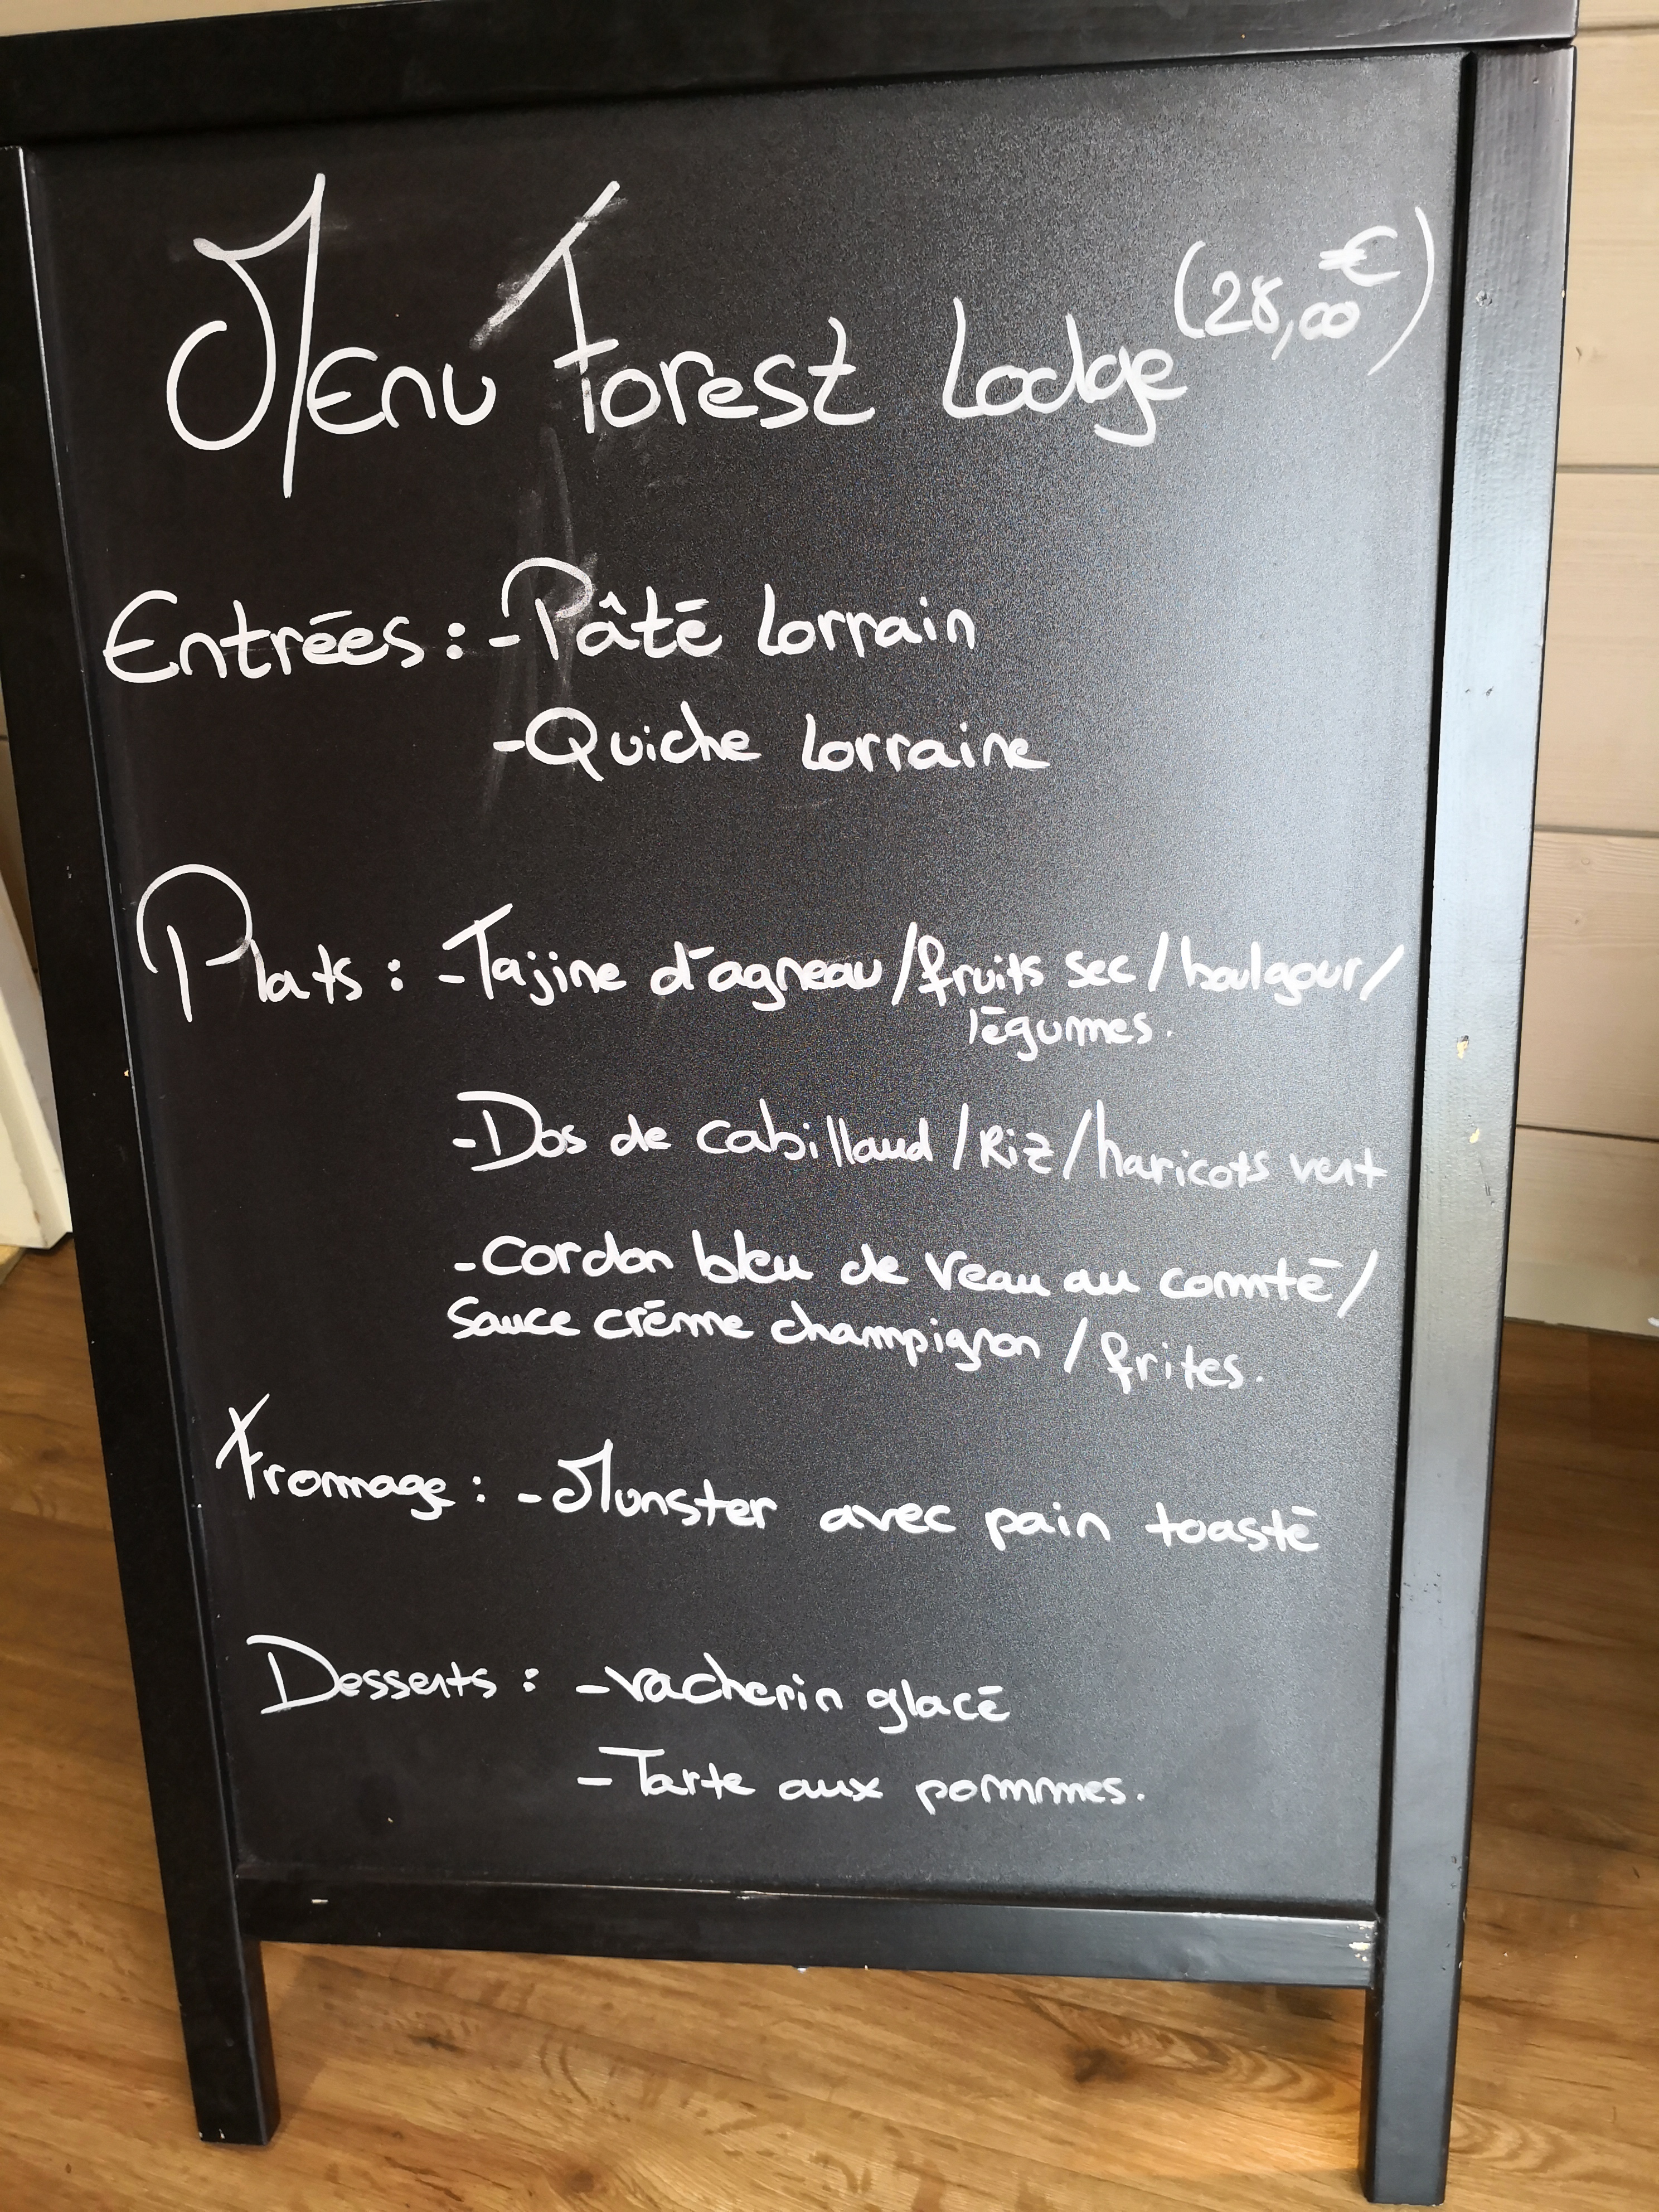 Menu Forest Lodge (28,00€)
Entrées : - Pâté Lorrain
- Quiche Lorraine
Plats : - Tajine d'agneau / fruits sec / boulgour /
légumes.
- Dos de cabillaud / Riz / haricots vert
- Cordon bleu de Veau au comté /
Sauce crème champignon / frites.
Fromage : - Munster avec pain toasté
Desserts : - vacherin glacé
- Tarte aux pommes.